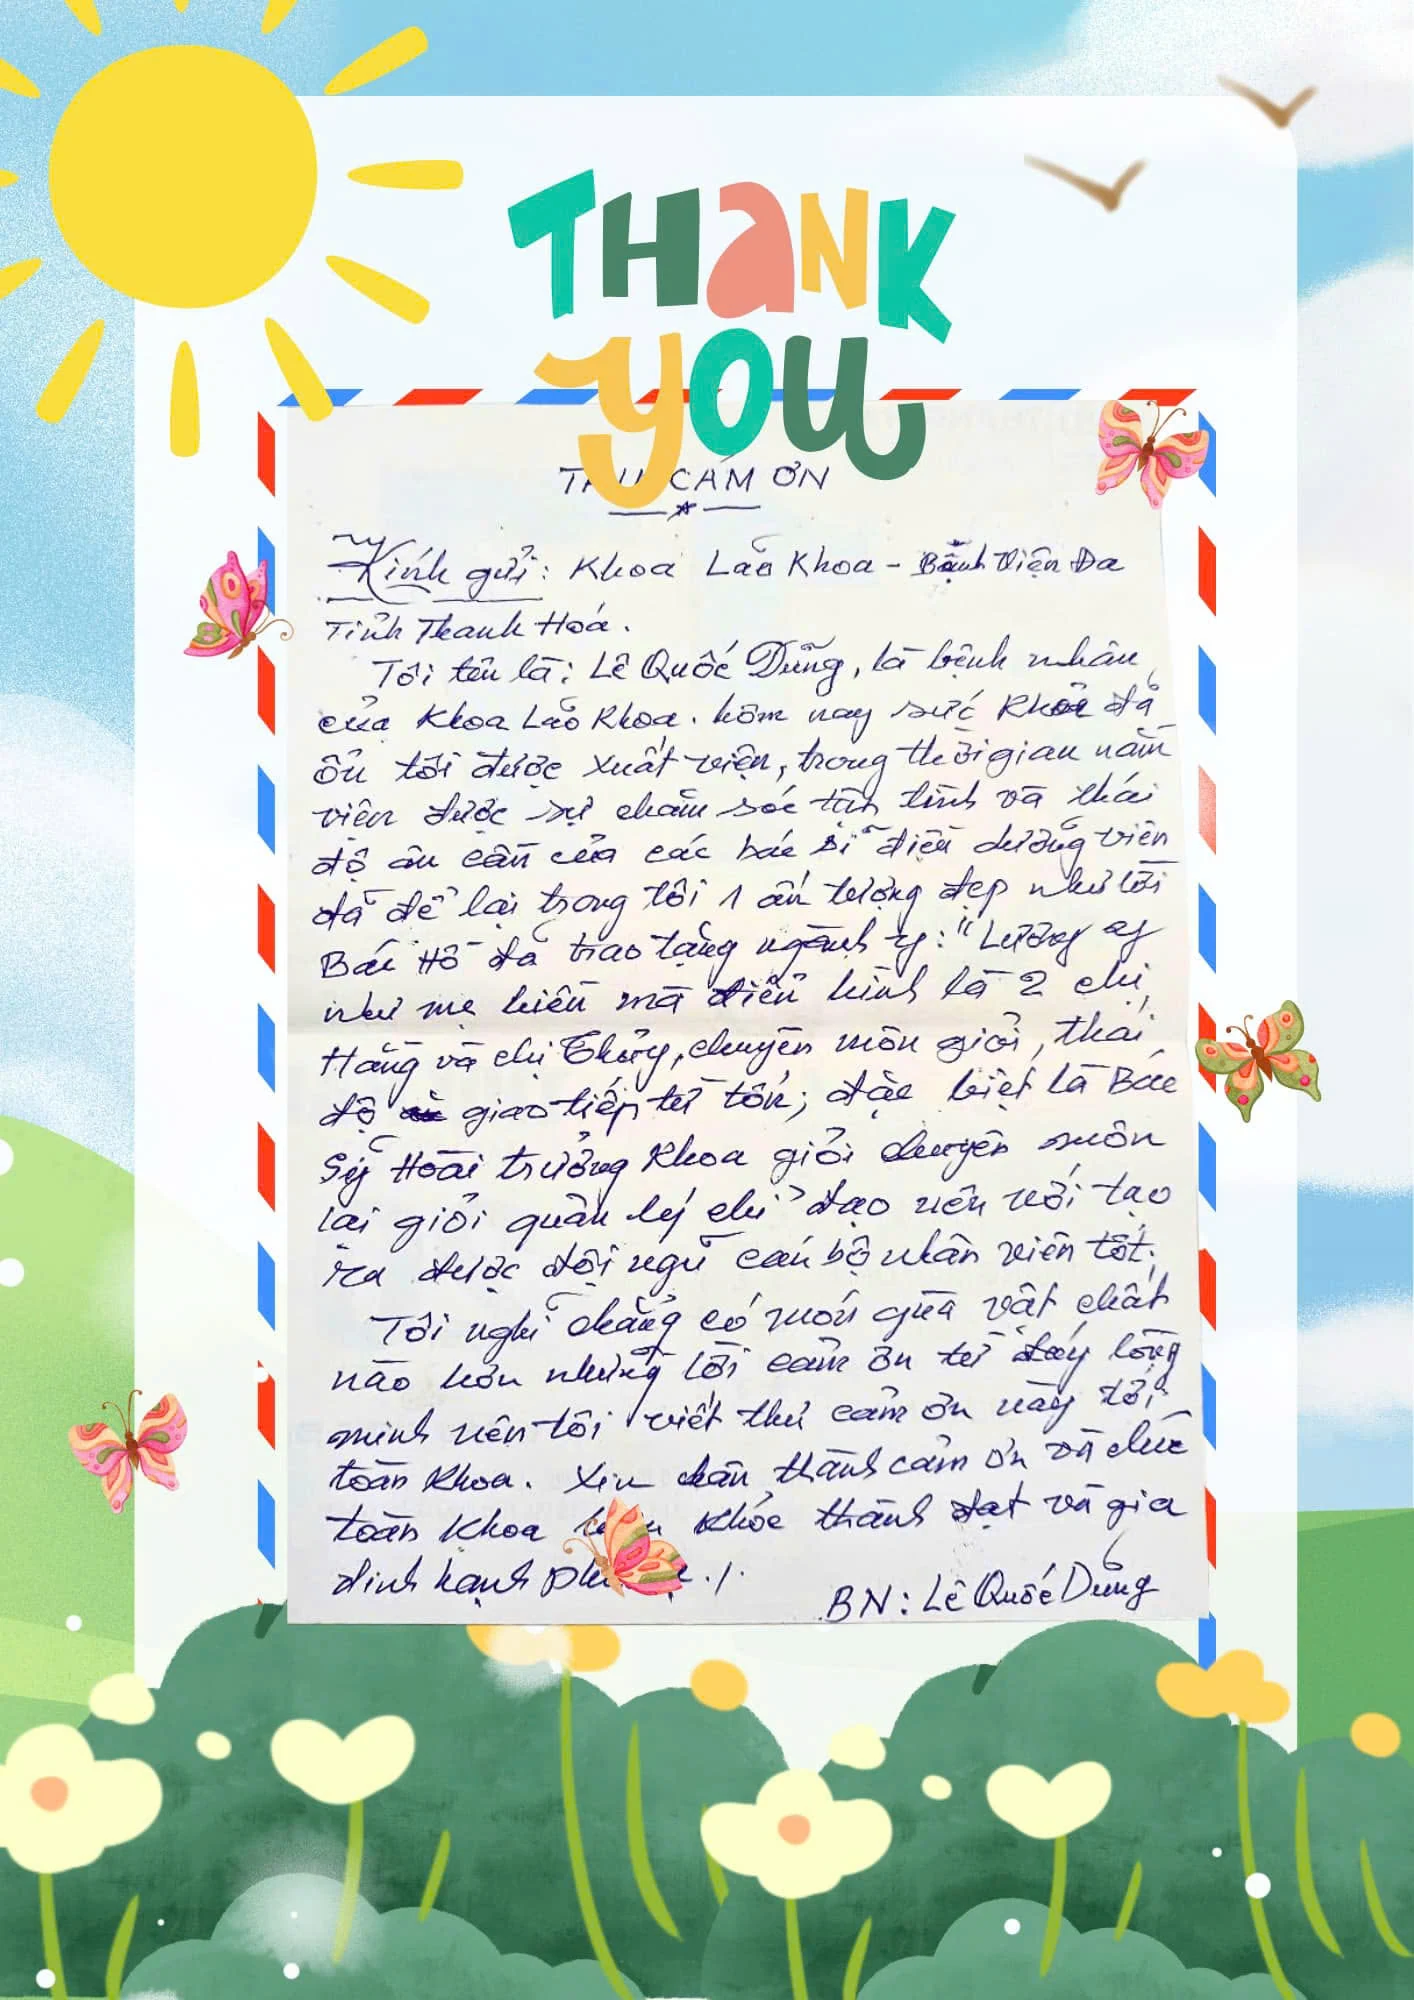 THANK
YOU
THƯ CẢM ƠN
Kính gửi: Khoa Lão Khoa - Bệnh Viện Đa
Tỉnh Thanh Hoá.
Tôi tên là: Lê Quốc Dũng, là bệnh nhân
của Khoa Lão Khoa. hôm nay sức Khỏe đã
ổn tôi được xuất viện, trong thời gian nằm
viện được sự chăm sóc tận tình và thái
độ ân cần của các bác sĩ điều dưỡng viên
đã để lại trong tôi 1 ấn tượng đẹp như lời
Bác Hồ đã trao tặng ngành y: "Lương y
như mẹ hiền mà điển hình là 2 chị
Hằng và chị Thủy, chuyên môn giỏi, thái
độ giao tiếp từ tốn; đặc biệt là Bác
Sỹ Hoài trưởng Khoa giỏi chuyên môn
lại giỏi quản lý chỉ đạo nên mới tạo
ra được đội ngũ cán bộ nhân viên tốt.
Tôi nghĩ chẳng có món quà vật chất
nào hơn những lời cảm ơn từ đáy lòng
mình nên tôi viết thư cảm ơn này tới
toàn Khoa. Xin chân thành cảm ơn và chúc
toàn Khoa khỏe thành đạt và gia
đình hạnh ./.
BN: Lê Quốc Dũng